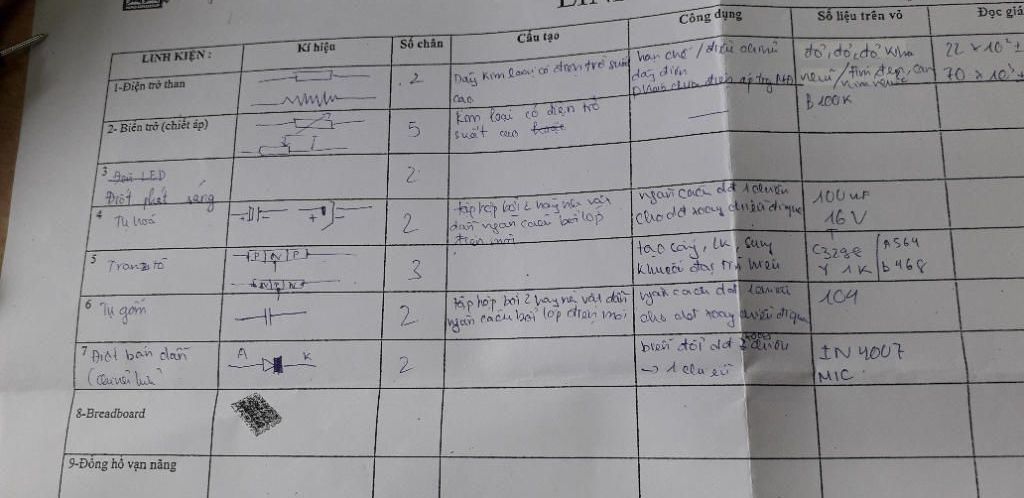 LIN
LINH KIỆN :
Kí hiệu
Số chân
Cấu tạo
Công dụng
Số liệu trên vỏ
Đọc giá
1-Điện trở than
2
Dây kim loại có điện trở suất
cao
hạn chế / điều chỉnh
dây điện
đỏ, đỏ, đỏ
B 100K
22 x 10² ±
70 x 10³
2- Biến trở (chiết áp)
5
kim loại có điện trở
suất cao
3 LED
Điôt phát sáng
2
4
Tụ hoá
2
tập hợp bởi 2 hay nhiều vật
dẫn ngăn cách bởi lớp
điện môi
ngăn cách dđ 1 chiều
cho dđ xoay chiều đi qua
100uF
16V
5
Tranzito
P N P
3
tạo sóng,
khuếch đại tín hiệu
A564
b468
6
Tụ gốm
2
tập hợp bởi 2 hay nhiều vật dẫn
ngăn cách bởi lớp điện môi
ngăn cách dđ 1 chiều
cho dđ xoay chiều đi qua
104
7 Điôt bán dẫn
A
K
2
biến đổi dđ
→ 1 chiều
IN 4007
MIC
8-Breadboard
9-Đồng hồ vạn năng